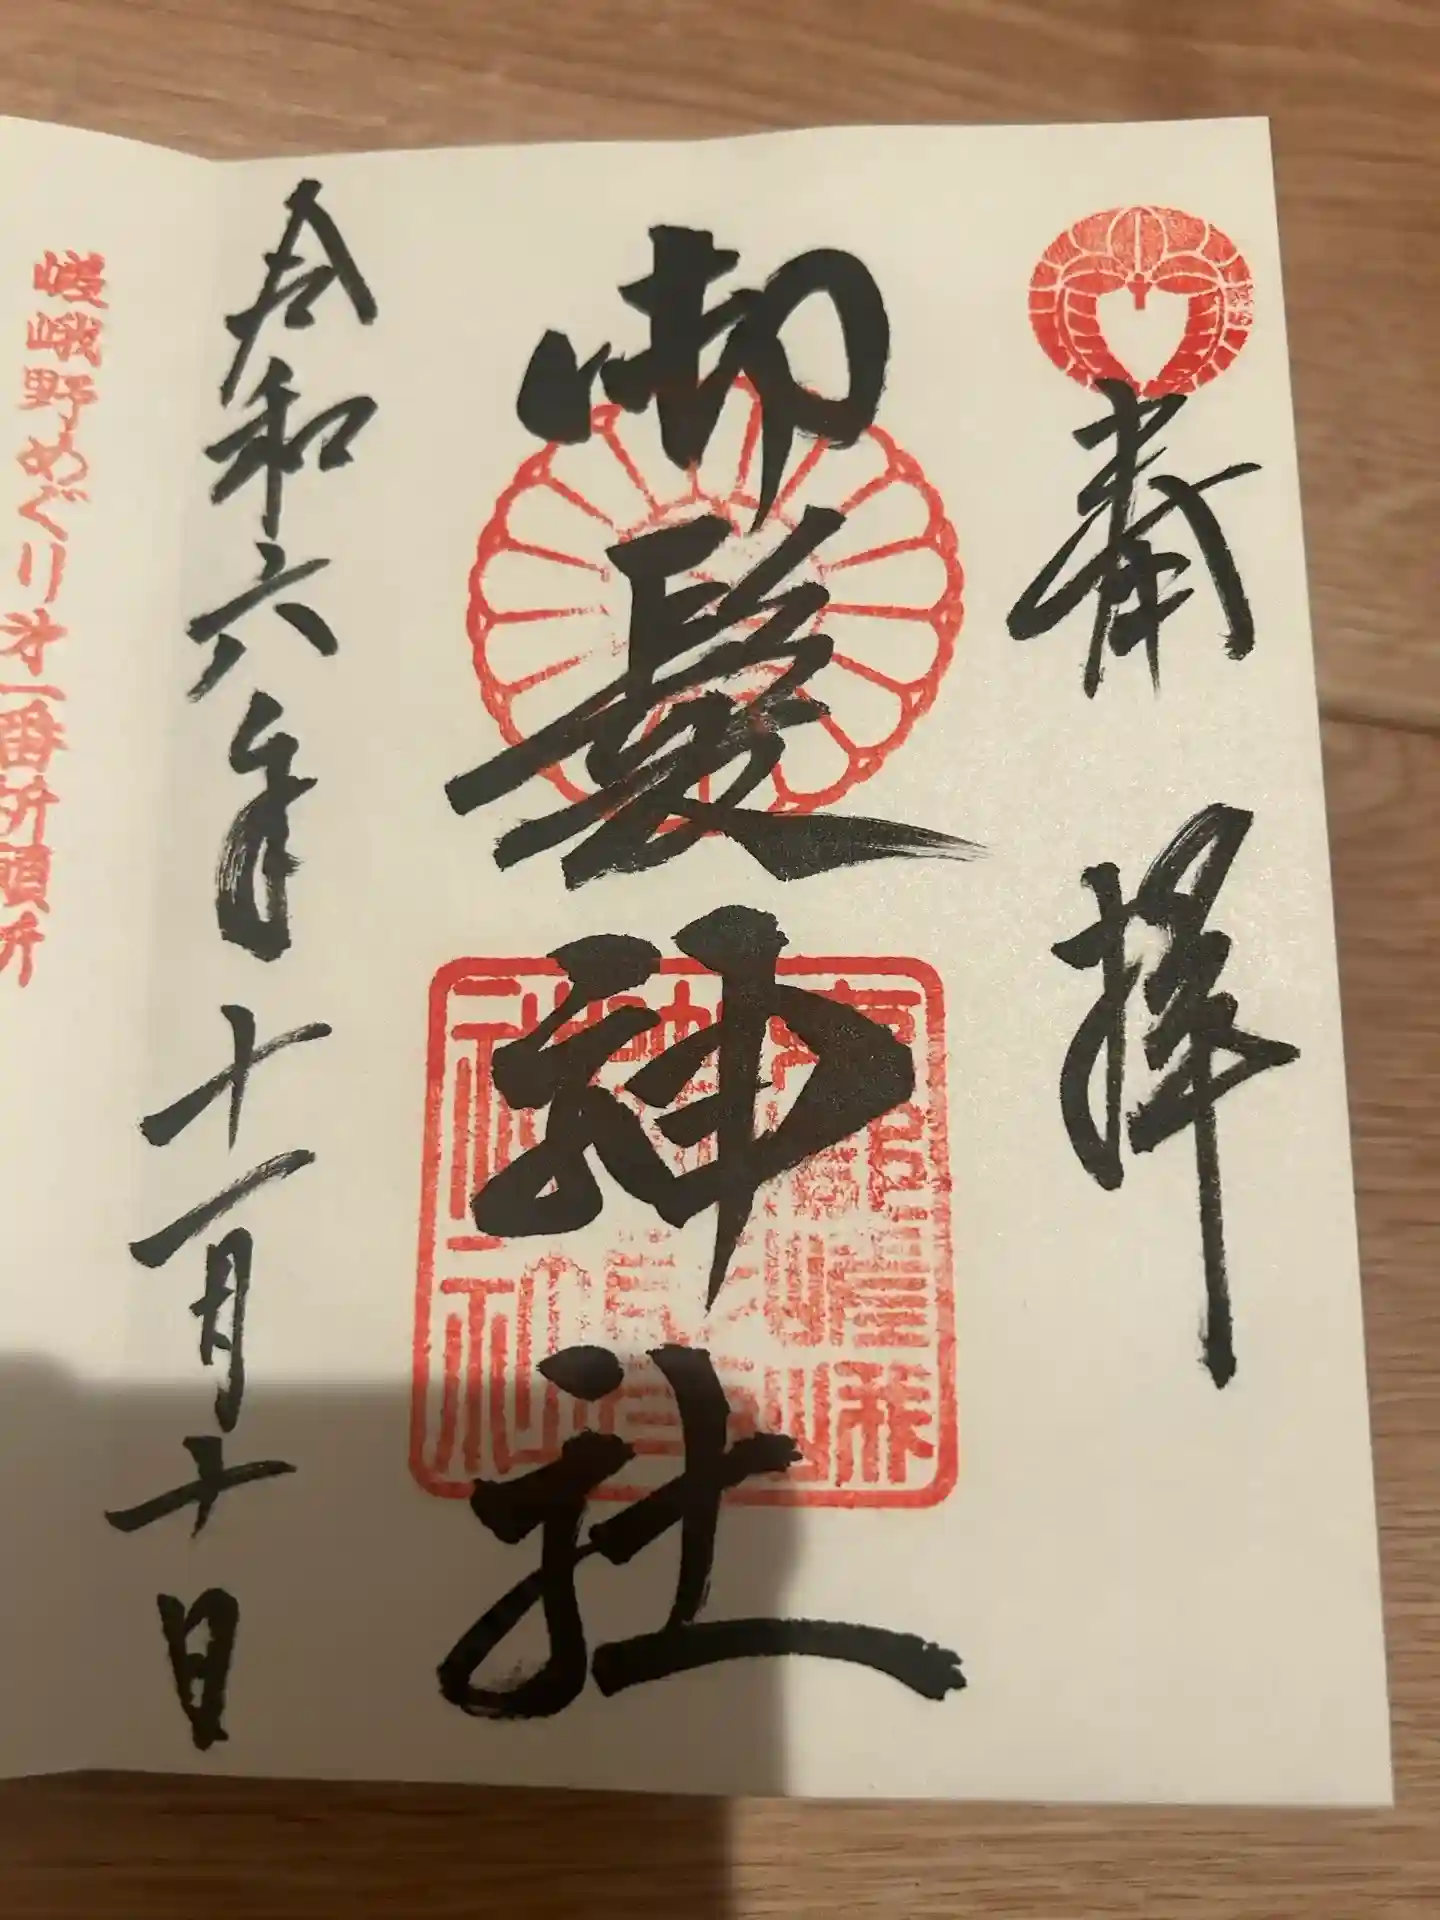 奉拝
御髪神社
令和六年十一月十日
嵯峨野めぐり才一番祈願所